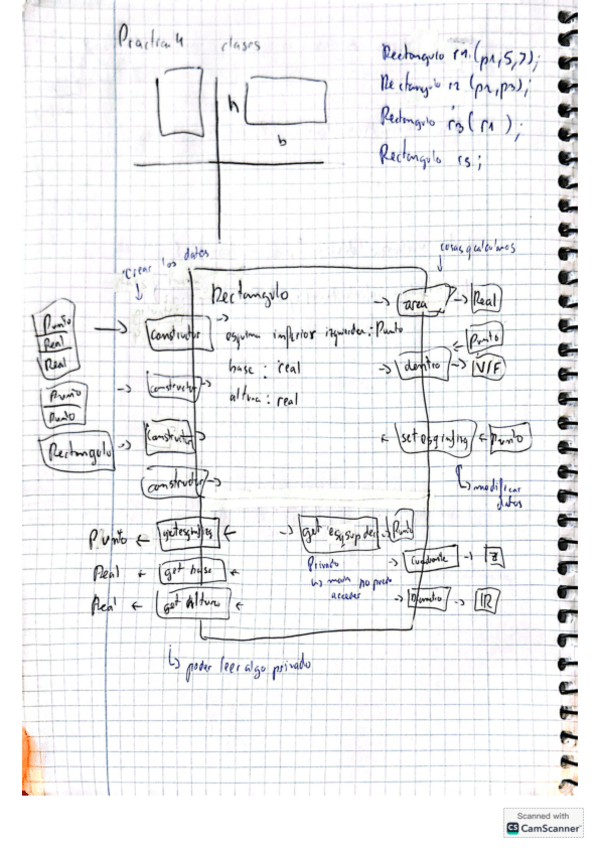 Practica 4 clases
Rectangulo r1 (p1,5,7);
Rectangulo r2 (p2,p3);
Rectangulo r3 (r1);
Rectangulo r5;
h
b
Crear los datos
cosas q calculamos
Rectangulo
Punto
Real
Real
constructor
esquina inferior izquierda: Punto
base: real
altura: real
area
Real
Punto
dentro
V/F
Punto
Punto
constructor
Rectangulo
constructor
constructor
set esqinfizq
Punto
modificar
datos
Punto
get esqsupder
Punto
Real
get base
Privado
main no puede
acceder
cuadrante
Z
Real
get altura
IR
poder leer algo privado
Scanned with
CS CamScanner